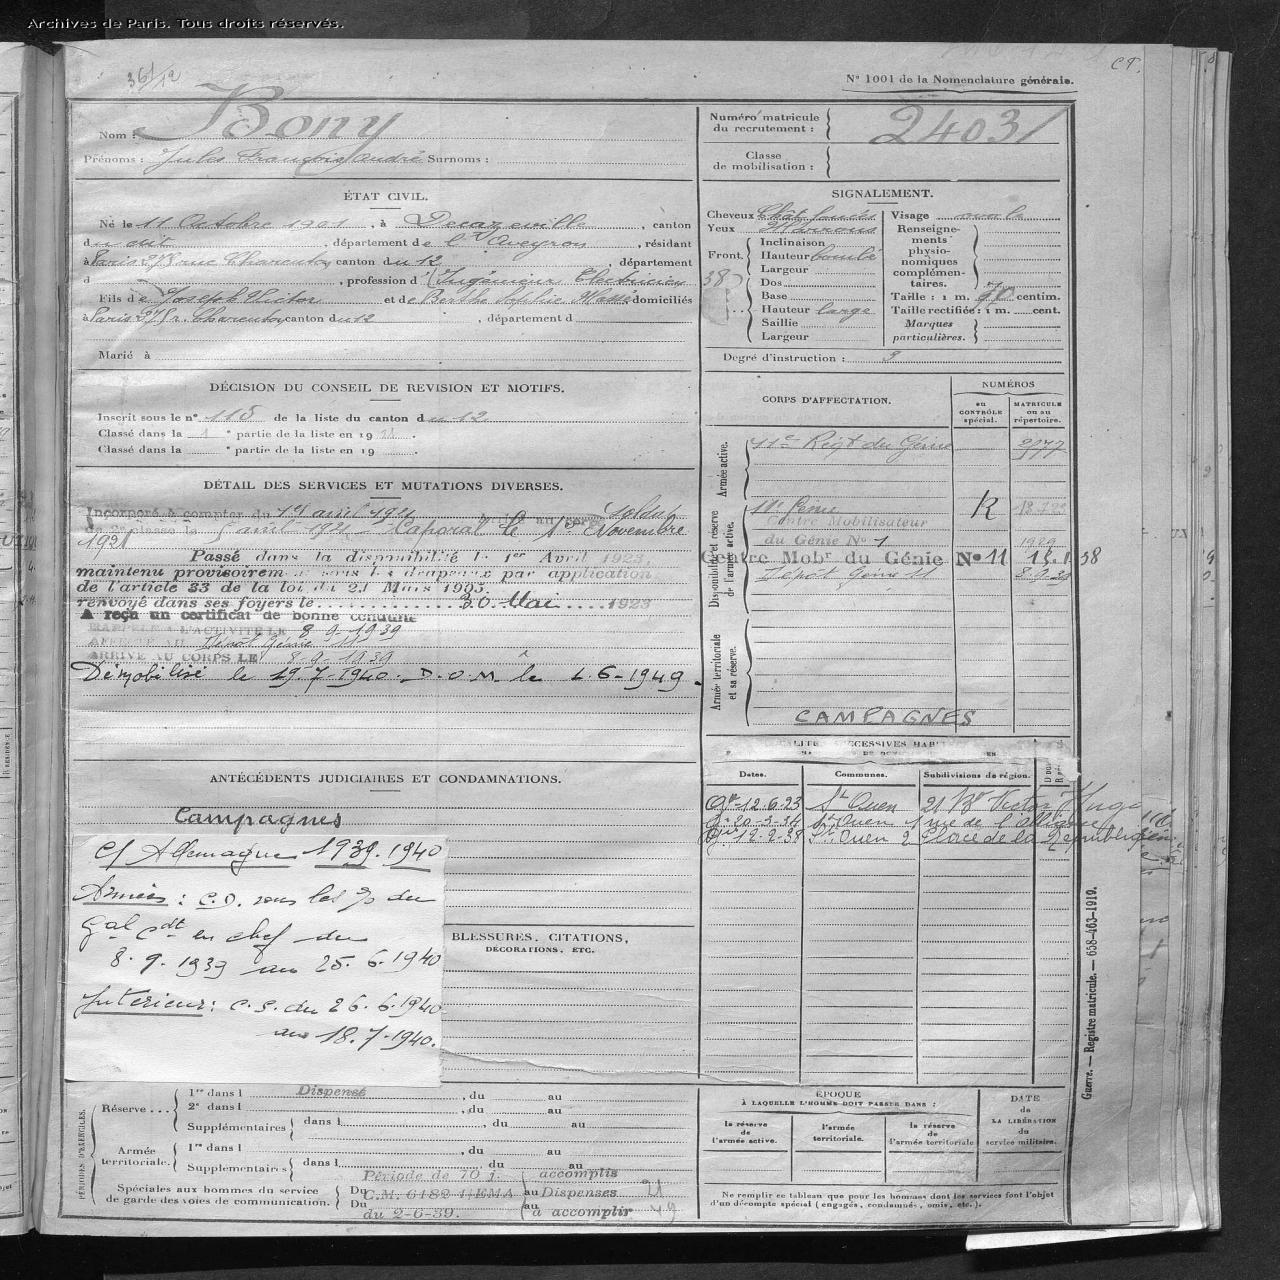 Archives de Paris. Tous droits réservés.
36/12
C.P.
N° 1001 de la Nomenclature générale.
Nom : Bony
Prénoms : Jules François André Surnoms :
ÉTAT CIVIL.
Né le 11 Octobre 1901, à Decazeville, canton
du dit, département de l'Aveyron, résidant
à Paris 278 rue Charenton canton du 12, département
d , profession d'Ingénieur Electricien
Fils de Joseph Victor et de Berthe Sophie domiciliés
à Paris 278 r. Charenton canton du 12, département d
Marié à
DÉCISION DU CONSEIL DE REVISION ET MOTIFS.
Inscrit sous le n° 115 de la liste du canton du 12
Classé dans la 1 e partie de la liste en 1921.
Classé dans la e partie de la liste en 19 .
DÉTAIL DES SERVICES ET MUTATIONS DIVERSES.
Incorporé à compter du avril 1921 au corps Soldat
de 2e classe le avril 1921 Caporal le Novembre
1921
Passé dans la disponibilité le 1er Avril 1923,
maintenu provisoirement sous les drapeaux par application
de l'article 33 de la loi du 21 Mars 1905.
renvoyé dans ses foyers le 30 Mai 1923
A reçu un certificat de bonne conduite
RAPPELÉ A L'ACTIVITÉ LE 8-9-1939
AFFECTÉ AU Dépôt Génie 11
ARRIVÉ AU CORPS LE 8-9-1939
Démobilisé le 19-7-1940. D.O.M. le 1.6-1949.
ANTÉCÉDENTS JUDICIAIRES ET CONDAMNATIONS.
Campagnes
C/ Allemagne 1939.1940
Armées : C.D. sous les du
Gal Cdt en chef du
8.9.1939 au 25.6.1940
Intérieur : C.S. du 26.6.1940
au 18.7.1940.
BLESSURES, CITATIONS,
DÉCORATIONS, ETC.
PÉRIODES D'EXERCICES.
Réserve ... 1re dans l Dispensé, du au
2e dans l , du au
Supplémentaires dans l , du au
Armée territoriale. 1re dans l , du au
Supplémentaires dans l , du au
Spéciales aux hommes du service
de garde des voies de communication.
Du au
Du au
Période de 10 j. accomplis
C.M. 6182 1/EMA Dispenses
du 2-6-39. à accomplir
Numéro matricule
du recrutement : 2403
Classe
de mobilisation :
SIGNALEMENT.
Cheveux Chât foncés
Yeux Marrons
Front. Inclinaison
Hauteur bombé
Largeur
Dos
Base
Hauteur large
Saillie
Largeur
Visage ovale
Renseignements physionomiques complémentaires.
Taille : 1 m. centim.
Taille rectifiée : 1 m. cent.
Marques
particulières.
Degré d'instruction : 3
CORPS D'AFFECTATION.
NUMÉROS
au CONTRÔLE spécial.
MATRICULE ou au répertoire.
Armée active.
11e Régt du Génie
Disponibilité et réserve de l'armée active.
11e Génie R
Centre Mobilisateur
du Génie N° 1 1929
Centre Mobr du Génie N° 11 15.1.38
Dépôt Génie 11 8-9-39
Armée territoriale et sa réserve.
CAMPAGNES
Dates.
Communes.
Subdivisions de région.
12.6.23 St Ouen 21 Bd Victor Hugo
20-3-34 St Ouen 1 rue de l'alliance
12-2-38 St Ouen 2 Place de la République
Guerre. — Registre matricule. — 658-463-1919.
ÉPOQUE
À LAQUELLE L'HOMME DOIT PASSER DANS :
la réserve de l'armée active.
l'armée territoriale.
la réserve de l'armée territoriale
DATE
de
LA LIBÉRATION
du
service militaire.
Ne remplir ce tableau que pour les hommes dont les services font l'objet
d'un décompte spécial (engagés, condamnés, omis, etc.).